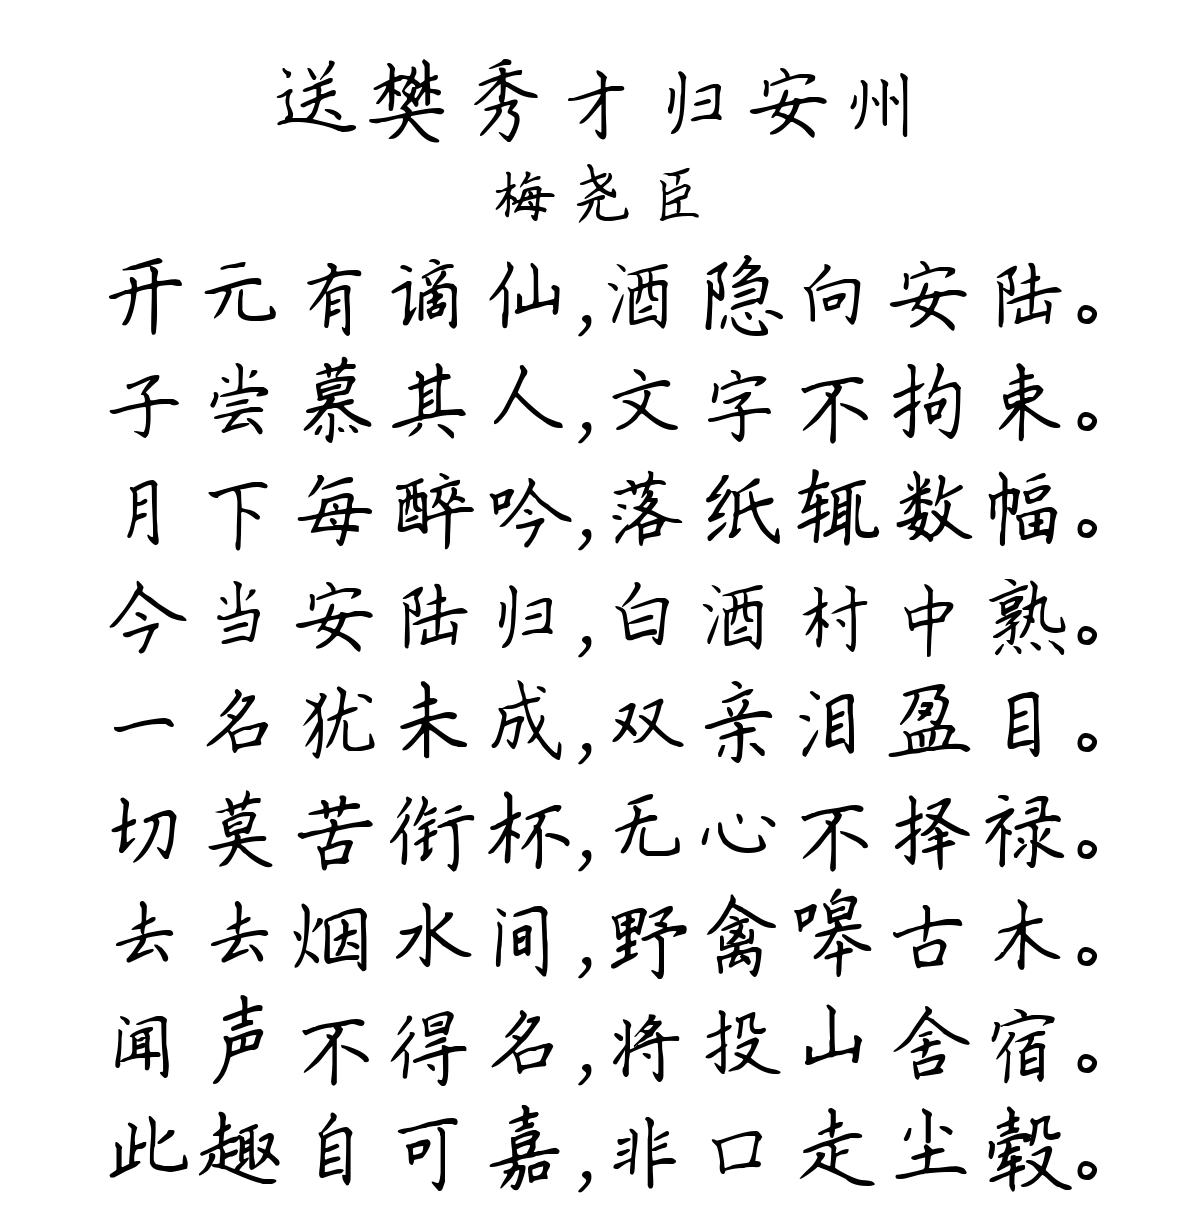 送樊秀才归安州
梅尧臣
开元有谪仙,酒隐向安陆。
子尝慕其人,文字不拘束。
月下每醉吟,落纸辄数幅。
今当安陆归,白酒村中熟。
一名犹未成,双亲泪盈目。
切莫苦衔杯,无心不择禄。
去去烟水间,野禽嗥古木。
闻声不得名,将投山舍宿。
此趣自可嘉,非口走尘毂。